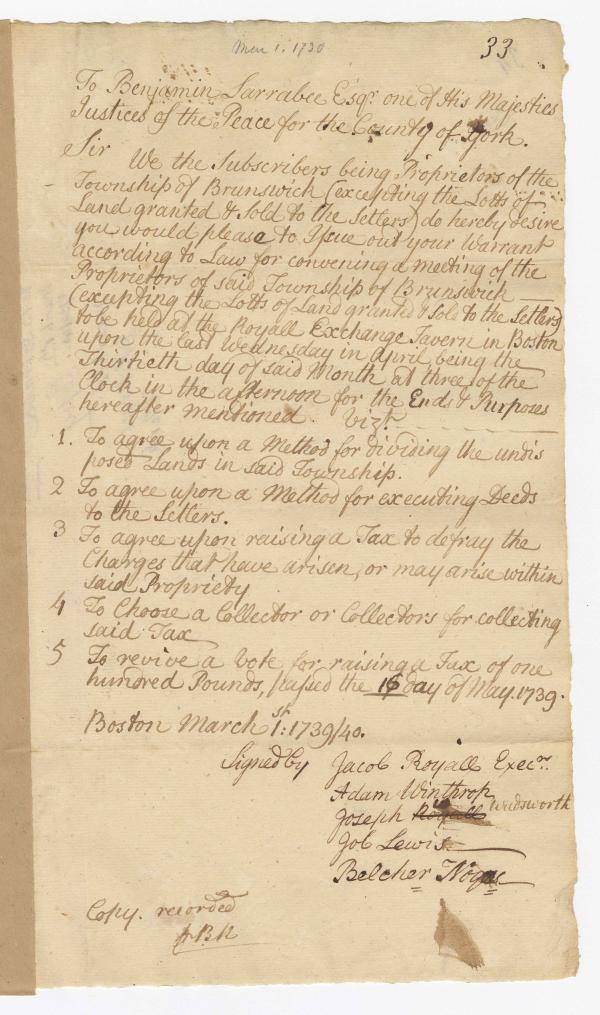 Mar 1. 1730
33
To Benjamin Larrabee Esqr. one of His Majesties
Justices of the Peace for the County of York.
Sir
We the Subscribers being Proprietors of the
Township of Brunswick (excepting the Lotts of
Land granted & Sold to the Setlers) do hereby desire
you would please to Issue out your Warrant
according to Law for convening a meeting of the
Proprietors of said Township of Brunswick
(excepting the Lotts of Land granted & Sold to the Setlers)
to be held at the Royall Exchange Tavern in Boston
upon the last Wednesday in April being the
Thirtieth day of said Month at three of the
Clock in the afternoon for the End & Purposes
hereafter mentioned. Vizt.
1. To agree upon a Method for dividing the undis
posed Lands in said Township.
2 To agree upon a Method for executing Deeds
to the Setlers.
3 To agree upon raising a Tax to defray the
Charges that have arisen, or may arise within
said Propriety
4 To Choose a Collector or Collectors for collecting
said Tax
5 To revive a Vote for raising a Tax of one
hundred Pounds, passed the 16 day of May. 1739.
Boston March 1st: 1739/40.
Signed by Jacob Royall Execr.
Adam Winthrop
Joseph Wadsworth
Job Lewis
Belcher Noyes
Copy. recorded